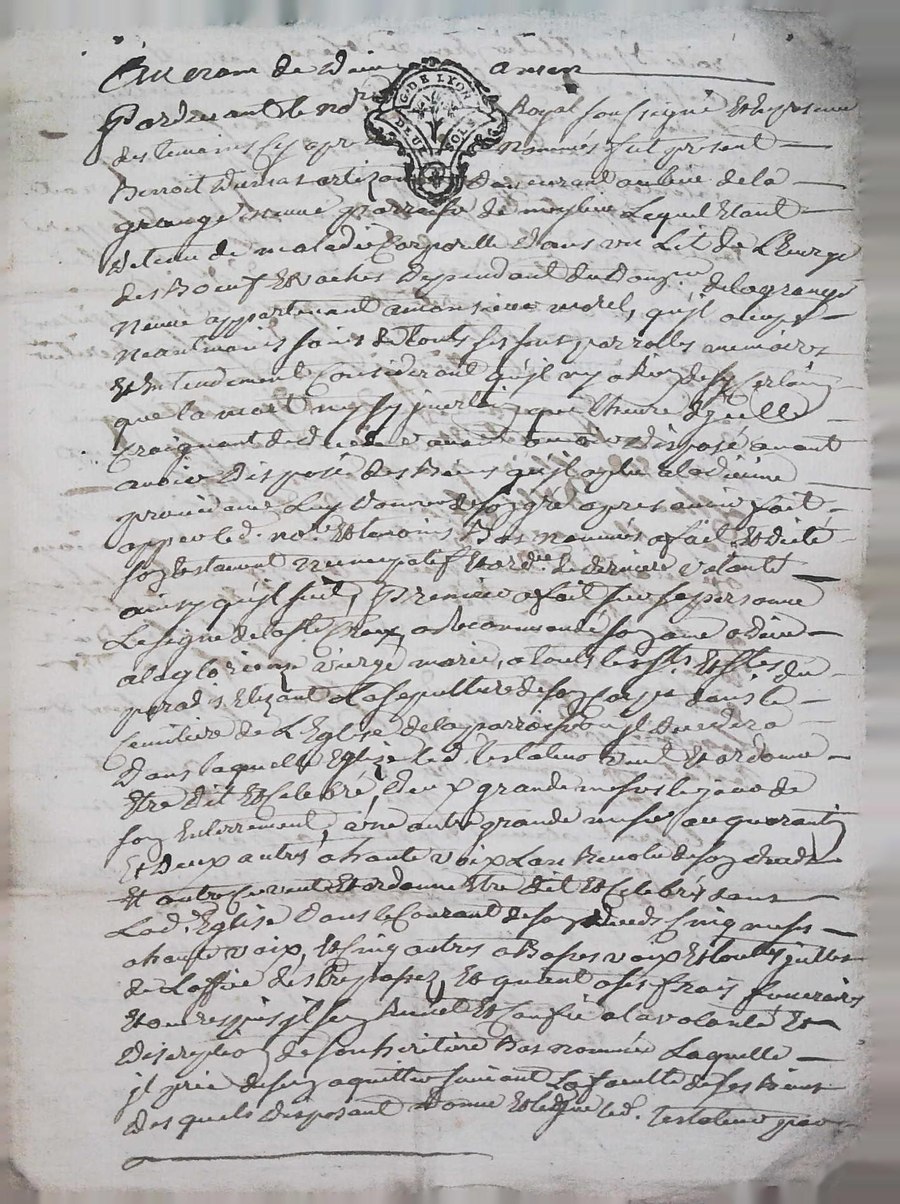 Au nom de Dieu amen
G. DE LYON
DEUX SOLS
Pardevant le no.re Royal soussigné et en presence
des temoins cy apres nommés fut present
Benoit Dumas artizan demeurant au lieu de la
grange neuve parroisse de Lequel etant
detenu de maladie corporelle dans un Lit de L'Eurye
des Boeufs et vaches dependant du Dom.ne de la grange
neuve appartenant a monsieur morel, qu'il occupe
neantmoins sain de touts ses sens parrolles memoires
et Entendement Considerant qu'il ny a Rien de sy Certain
que la mort ny sy jncertain que l'heure d'jcelle
Craignant de avoir disposé
avoir disposé des Biens qu'il a plu a la divine
providence Luy donner de son gré apres avoir fait
appeller led. no.re et temoins Bas nommés a fait et dicté
son testament nuncupatif et ord.re de derniere volonté
ainsy quil suit, Premier a fait sur sa personne
Le signe de la ste Croix, a Recommandé son ame a dieu
a la glorieuse vierge marie, a touts les sts. et stes du
paradis, Elizant la sepulture de son Corps dans le
Cemitiere de L'Eglise de la parroisse ou jl decedera
Dans laquelle Eglize led. testateur veut et ordonne
Etre dit et Celebré, deux grande messes le jour de
son Enterrement, une autre grande messe au quarantin
Et deux autres a haute voix L'an Revolu de son deceds
Et outre Ce veut et ordonne Etre dit et Celebrés dans
Lad. Eglise dans le Courant de son deceds Cinq messes
a haute voix, et Cinq autres a Basses voix et touttes
de Loffice des trepassez, Et quant a ses frais funeraires
jl sen Remet et Confie a la volonté et
discreption de son heritiere Bas nommée Laquelle
jl prie de sen aquitter suivant La faculté de ses Biens
des quels disposant donne et legue led. testateur par